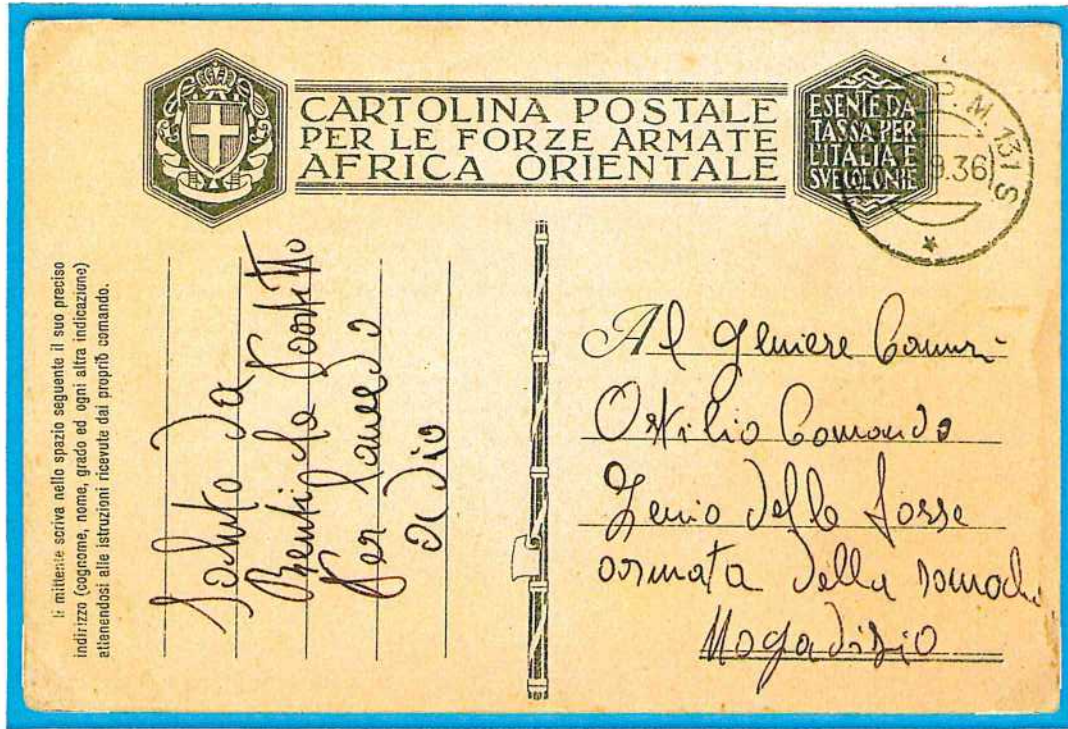 CARTOLINA POSTALE
PER LE FORZE ARMATE
AFRICA ORIENTALE
ESENTE DA
TASSA PER
L'ITALIA E
SVE COLONIE
P. M. 131 S
9.36
Il mittente scriva nello spazio seguente il suo preciso
indirizzo (cognome, nome, grado ed ogni altra indicazione)
attenendosi alle istruzioni ricevute dal proprio comando.
Da
Per
di Dio
Al Geniere
Ostilio Comando
Zenio delle forse
armata della
Mogadisio